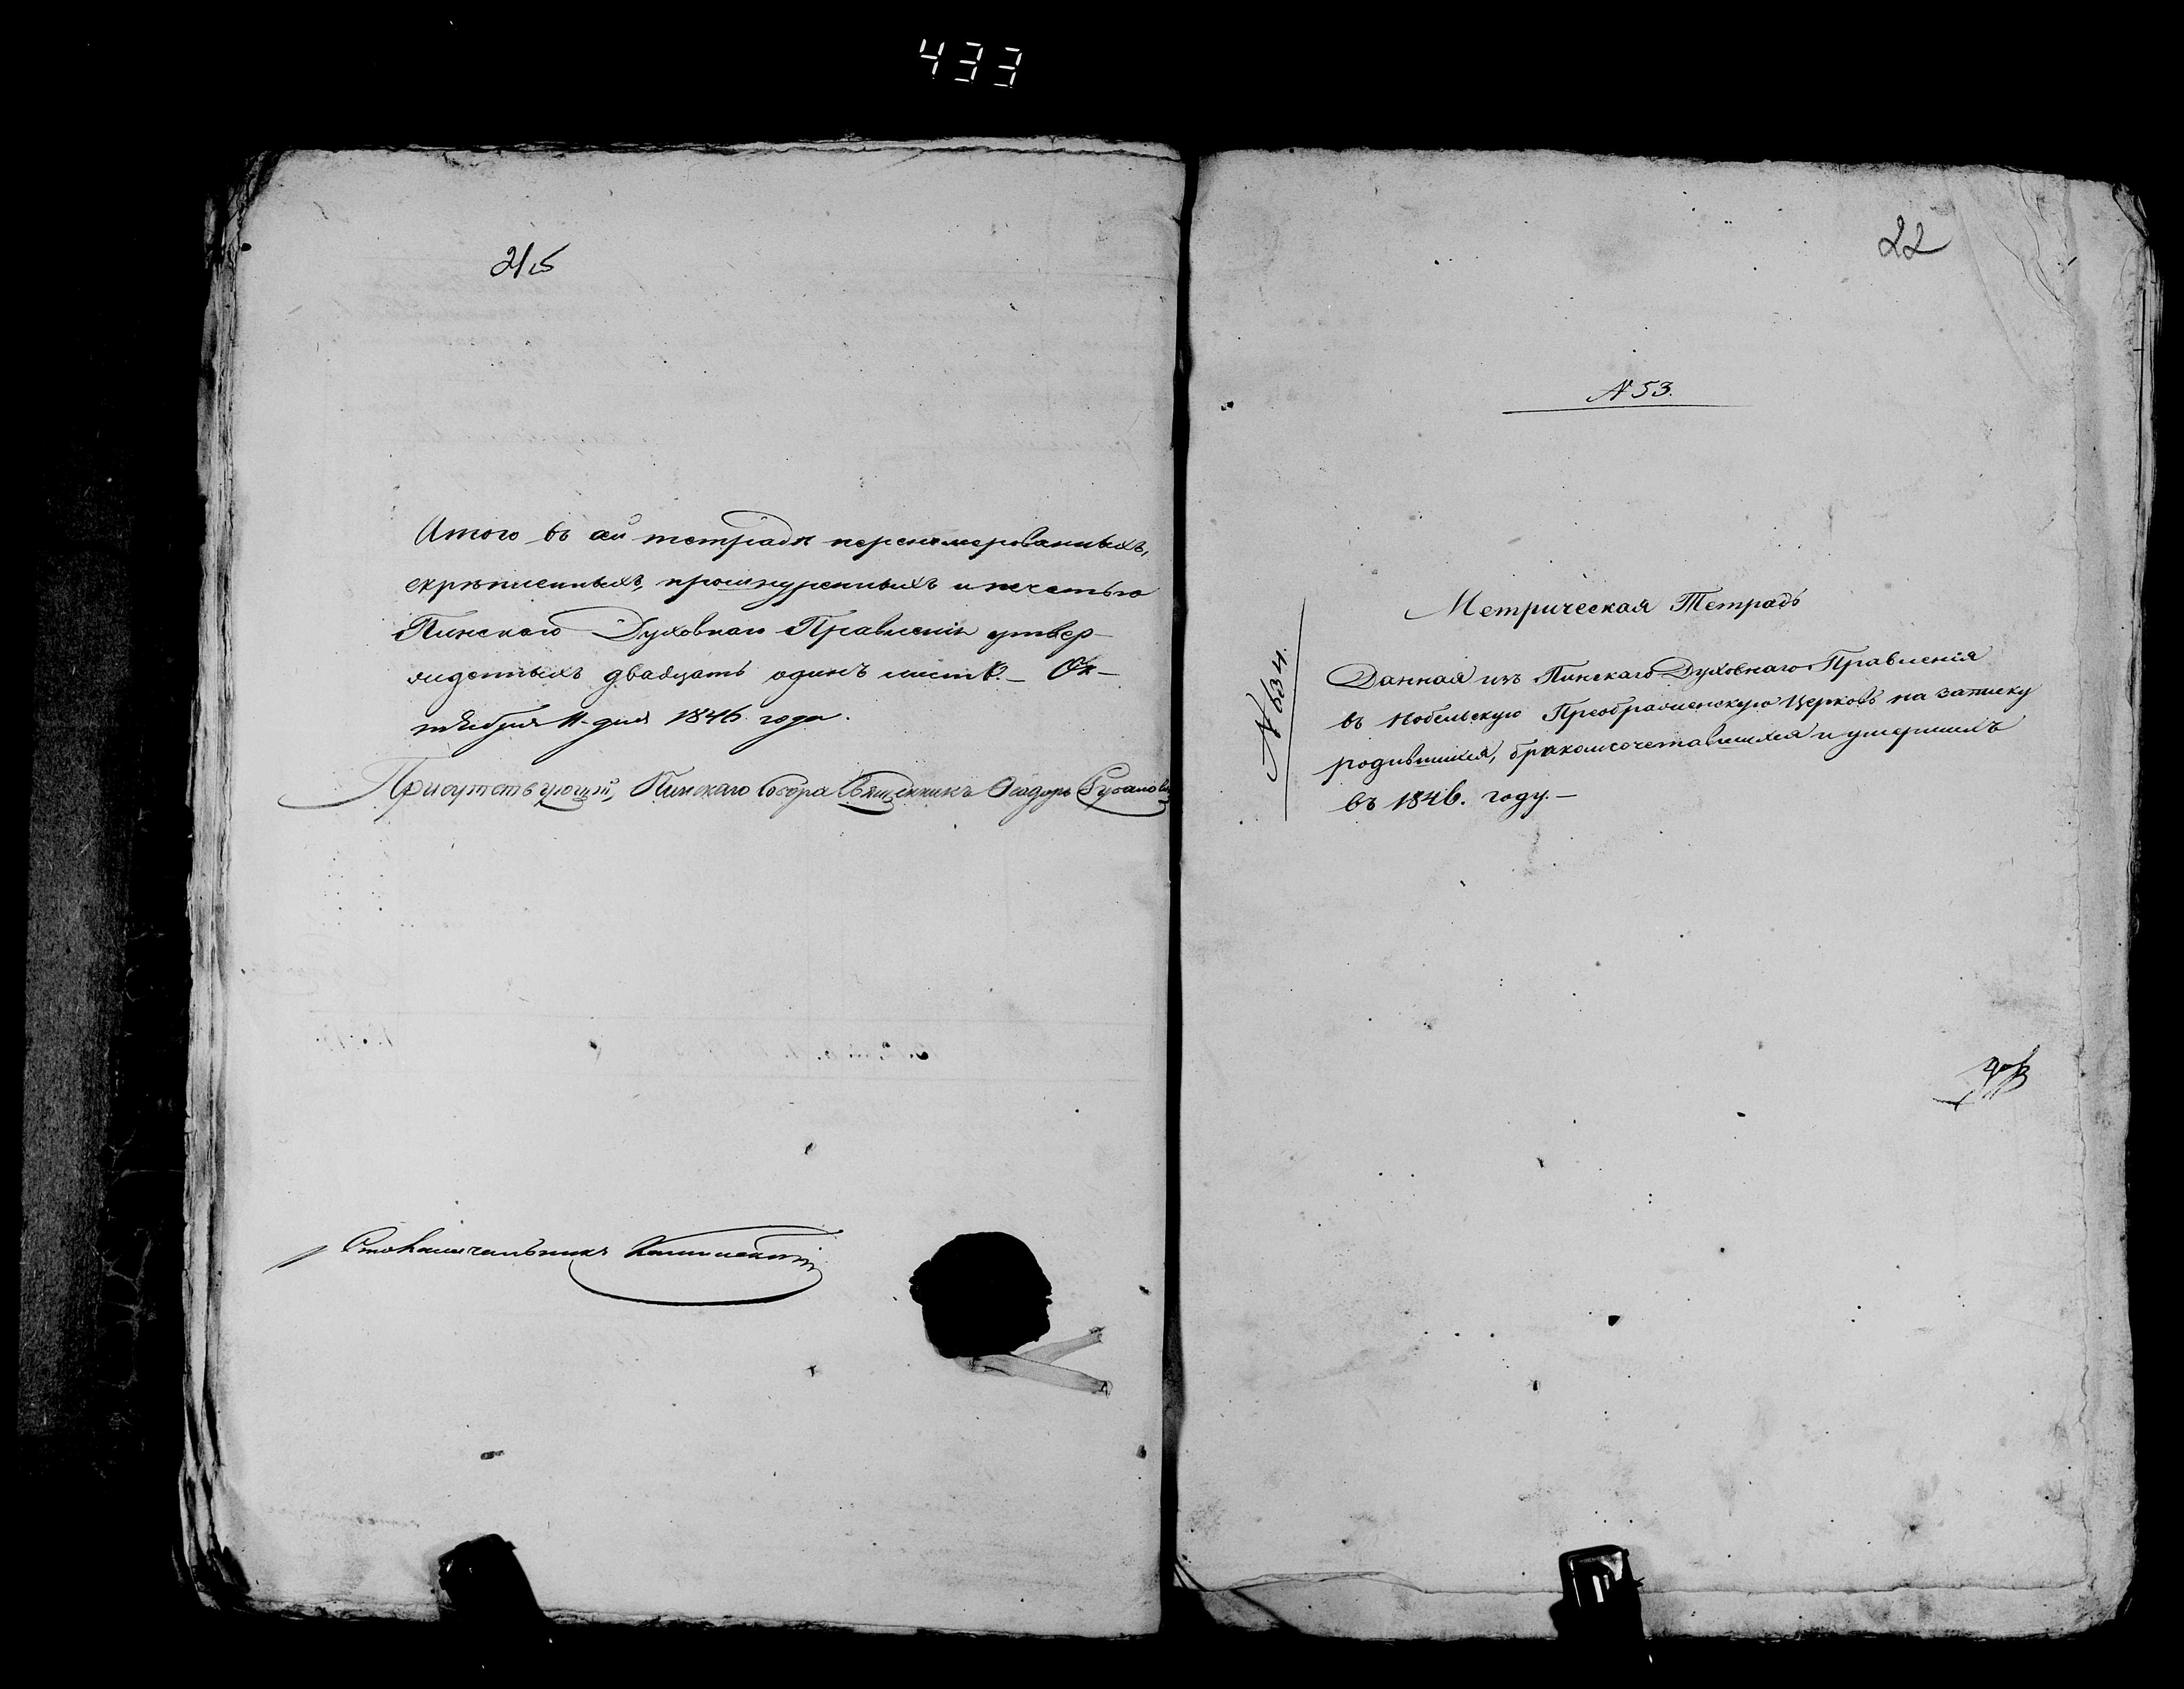 433
21 об
Итого въ сей тетрадѣ перенумерованныхъ,
скрѣпленныхъ, прошнуренныхъ и печатью
Пинскаго Духовнаго Правленія утвер-
жденныхъ двадцать одинъ листъ.- Ок-
тября 11 дня 1846 года.
Присутствующій, Пинскаго Собора Священникъ Ѳеодоръ
Столоначальникъ
22
N 53.
N 634.
Метрическая Тетрадь
Данная изъ Пинскаго Духовнаго Правленія
въ Нобельскую Преображенскую Церковь на записку
родившихся, бракомсочетавшихся и умершихъ
въ 1846. году.-